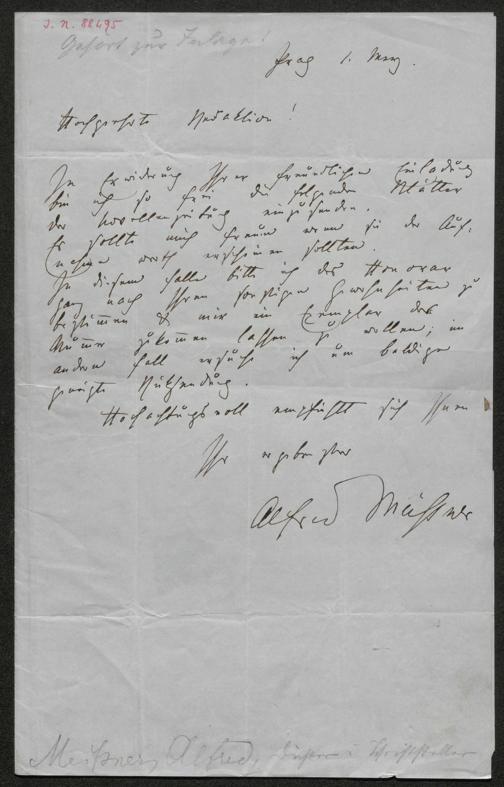 J. N. 88495
Gehört zur Beilage!
Prag 1. März.
Hochgeehrte Redaktion!
In Erwiderung Ihrer freundlichen Einladung
bin ich so frei die folgenden Blätter
der Novellenzeitung einzusenden.
Es sollte mich freuen wenn sie der Auf-
nahme werth erscheinen sollten.
In diesem Falle bitte ich das Honorar
ganz nach Ihren sonstigen Gewohnheiten zu
bestimmen & mir ein Exemplar der
Nummer zukommen lassen zu wollen; im
andern Fall ersuche ich um baldige
geneigte Rücksendung.
Hochachtungsvoll empfiehlt sich Ihnen
Ihr ergebenster
Alfred Meißner
Meißner, Alfred, Dichter u. Schriftsteller